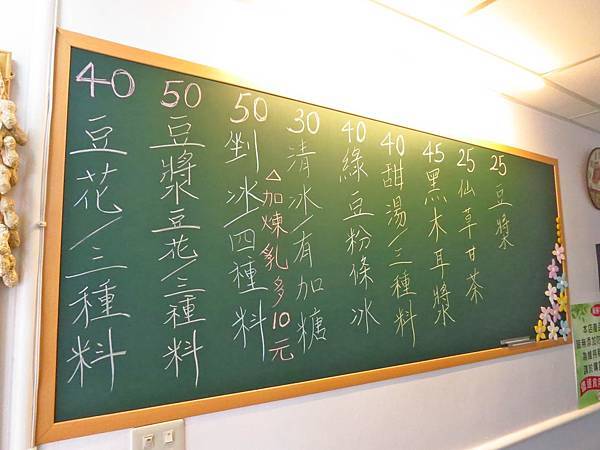 40 豆花/三種料
50 豆漿豆花/三種料
50 剉冰/四種料
△加煉乳多10元
30 清冰/有加糖
40 綠豆粉條冰
40 甜湯/三種料
45 黑木耳漿
25 仙草甘茶
25 豆漿